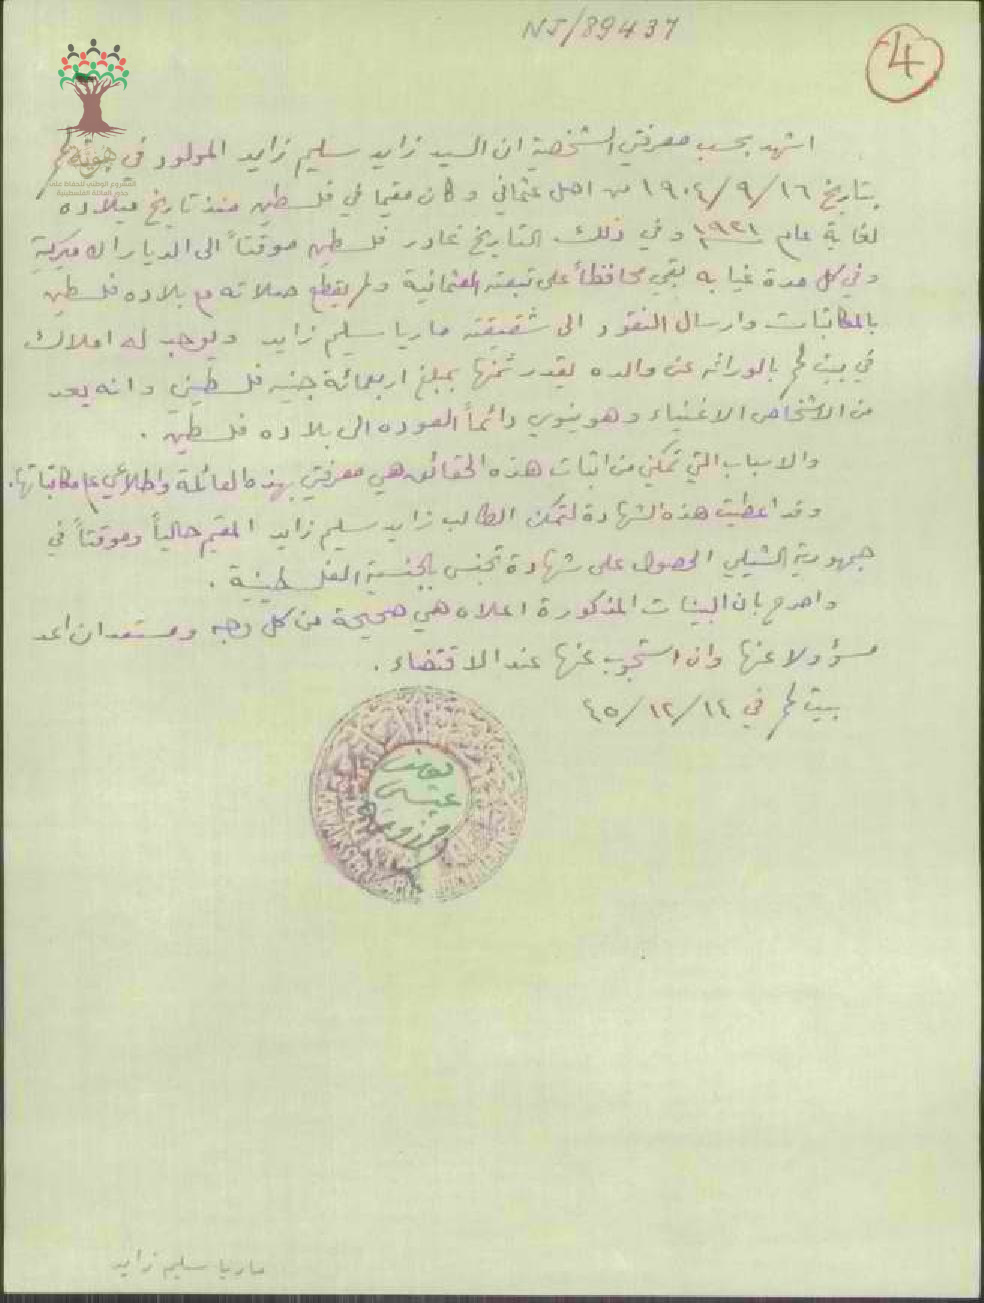 NJ/89437
4
هوية
المشروع الوطني للحفاظ على
جذور العائلة الفلسطينية
اشهد بحسب معرفتي الشخصية ان السيد زايد سليم زايد المولود في بيت لحم
بتاريخ ١٦/٩/١٩٠٤ من اصل عثماني وكان مقيما في فلسطين منذ تاريخ ميلاده
لغاية عام ١٩٢١ وفي ذلك التاريخ غادر فلسطين موقتاً الى الديار الاميركية
وفي كل مدة غيابه بقي محافظاً على تبعته العثمانية ولم يقطع صلاته مع بلاده فلسطين
بالمكاتبات وارسال النقود الى شقيقته ماريا سليم زايد ويوجد له املاك
في بيت لحم بالوراثه عن والده يقدر ثمنها بمبلغ اربعمائة جنيه فلسطيني وانه يعد
من الاشخاص الاغنياء وهو ينوي دائماً العوده الى بلاده فلسطين .
والاسباب التي تمكني من اثبات هذه الحقائق هي معرفتي بهذه العائلة واطلاعي على مكاتباتها.
وقد اعطيت هذه الشهادة لتمكن الطالب زايد سليم زايد المقيم حالياً وموقتاً في
جمهورية الشيلي الحصول على شهادة تجنس بالجنسية الفلسطينية .
واصرح بان البينات المذكورة اعلاه هي صحيحة من كل وجه ومستعد ان اعد
مسؤولا عنها وان استجوب عنها عند الاقتضاء .
بيت لحم في ١٤/١٢/٤٥
عيسى
ماريا سليم زايد